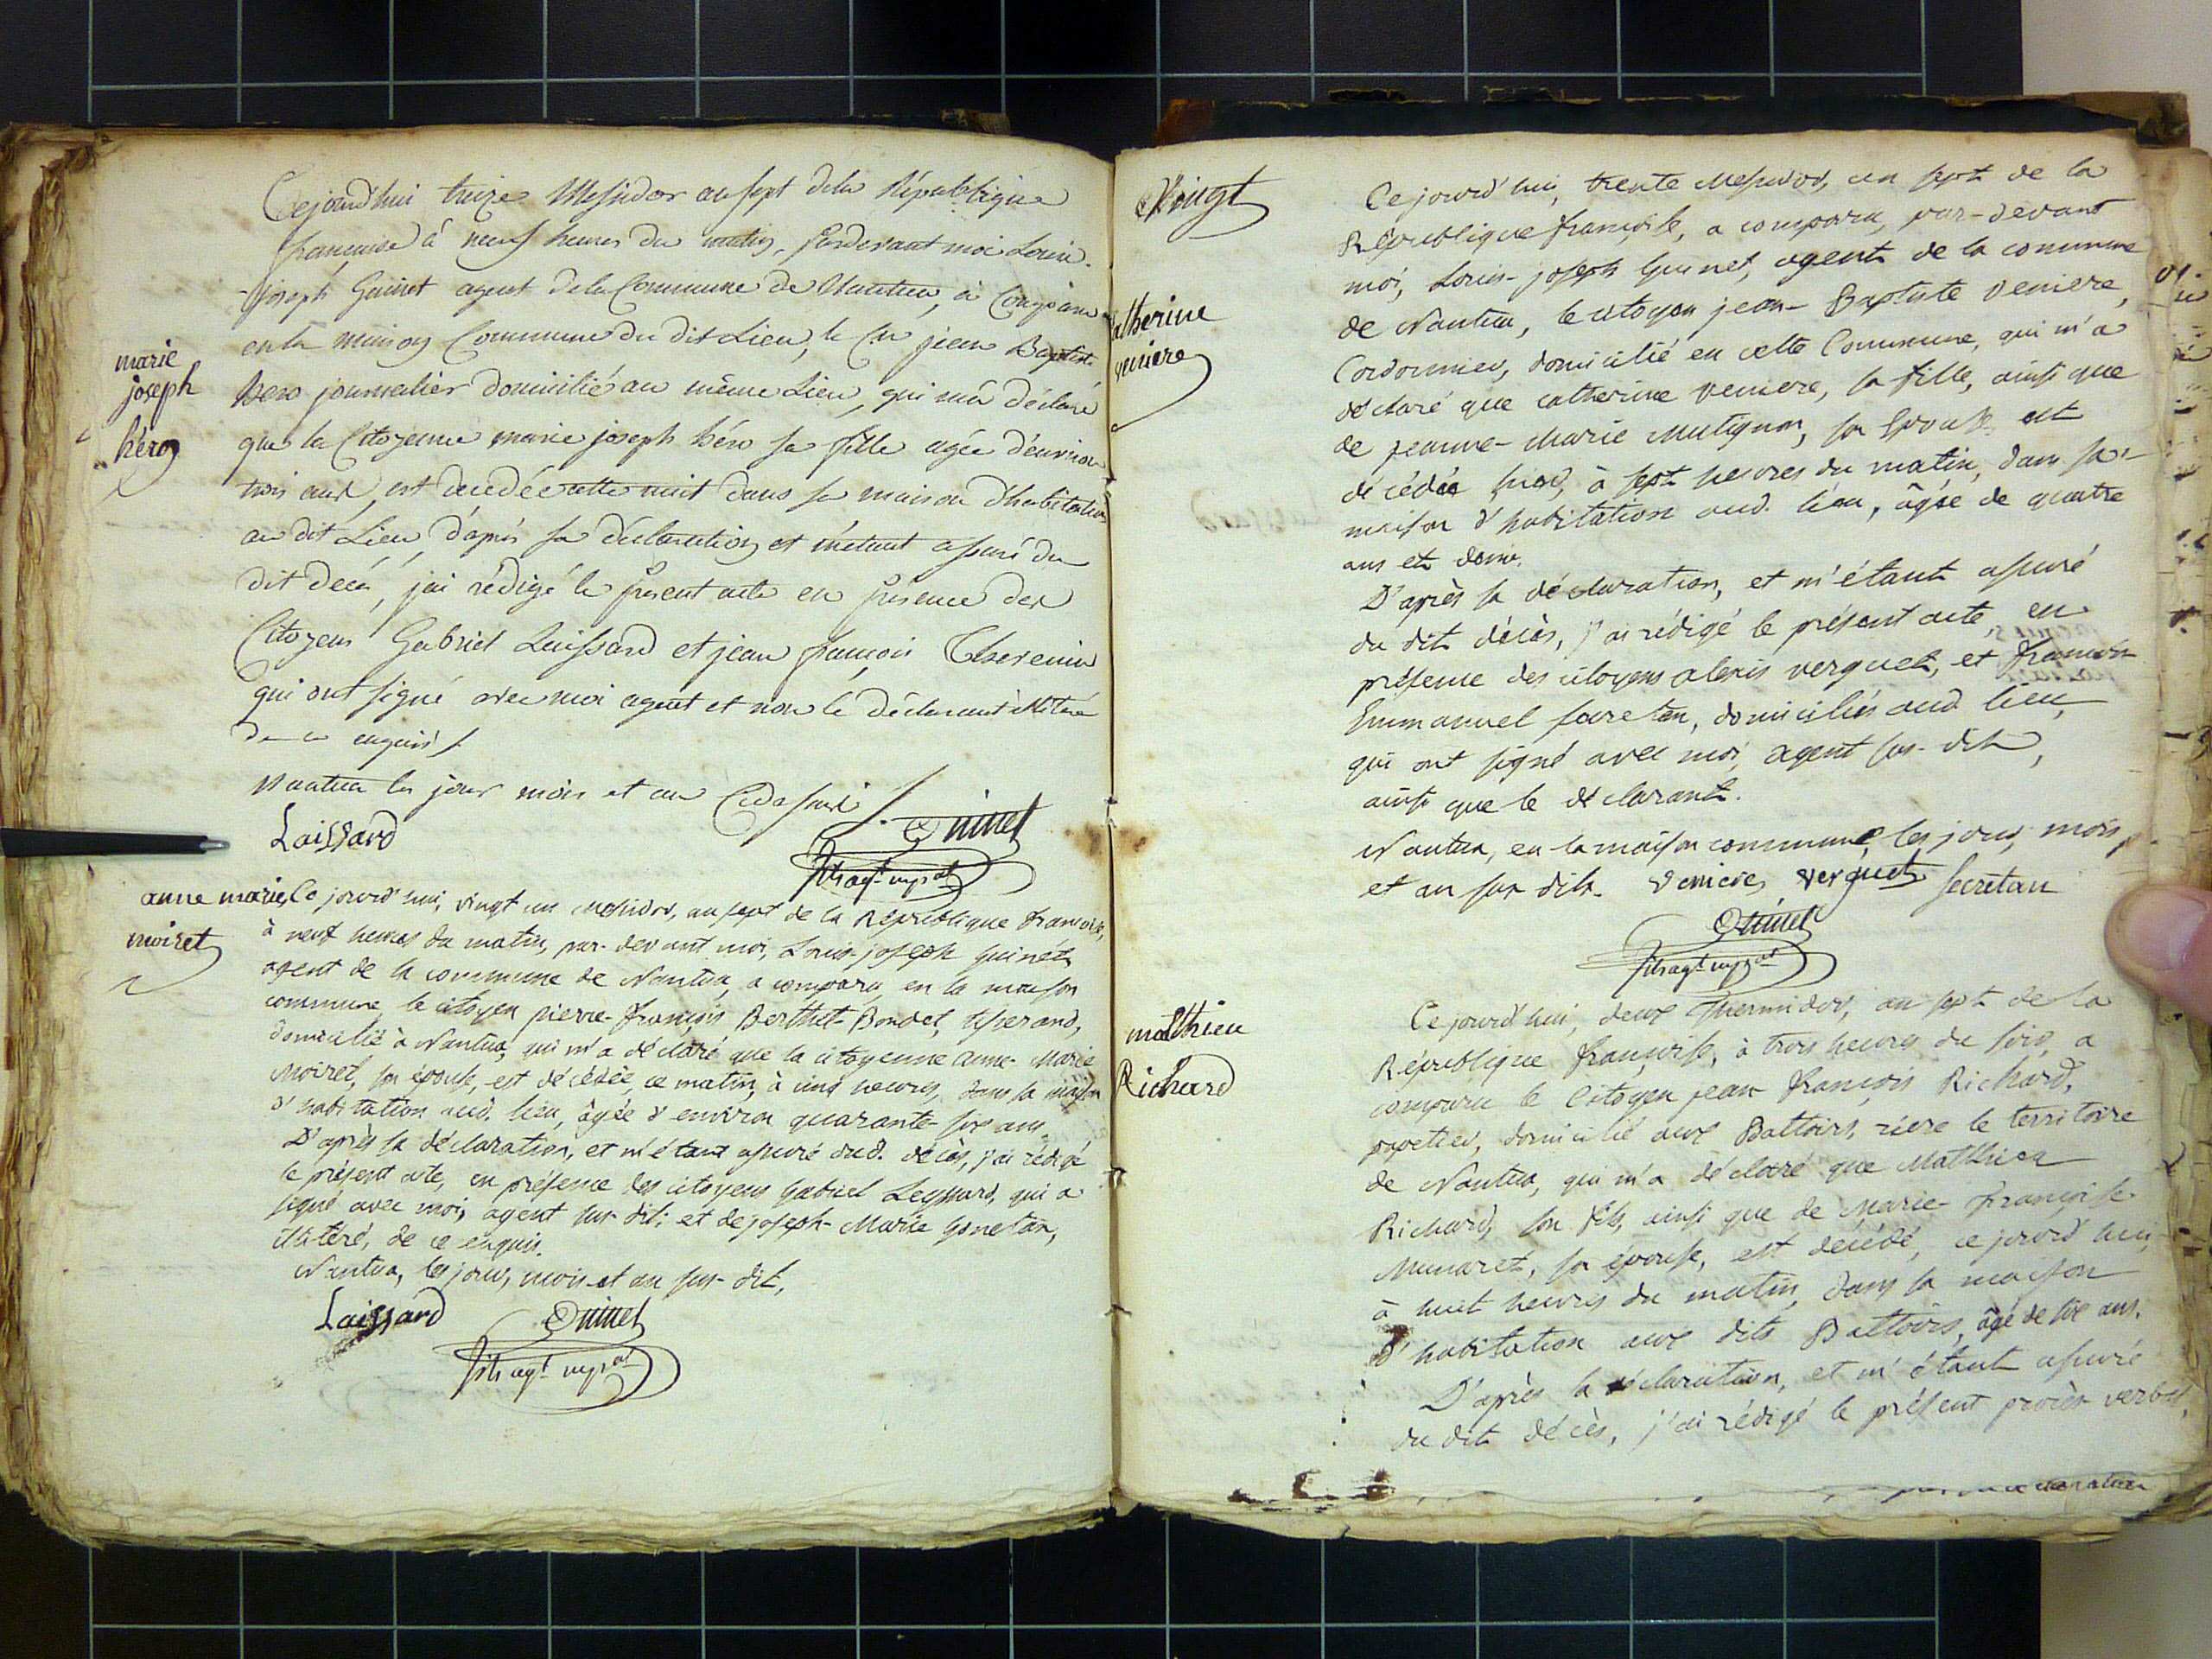 marie
joseph
héro
Cejourd'hui treize Messidor an sept dela République
française à neuf heures du matin, pardevant moi Louis-
-joseph Guinet agent dela Commune de Nantua, a Comparu
en la maison Commune du dit Lieu, le Cn jean Baptiste
héro journalier domicilié au même Lieu, qui m'a déclaré
que la Citoyenne marie joseph héro sa fille agée d'environ
trois ans, est decedée cette nuit dans sa maison d'habitation
au dit Lieu, d'après sa déclaration et m'étant assuré du
dit decès, j'ai rédigé le présent acte en présence des
Citoyens Gabriel Laissard et jean françois Thevenin
qui ont signé avec moi agent et non le déclarant illitéré
de ce enquis.
Nantua les jour mois et an Cidessus
Laissard Guinet
anne marie
moiret
Ce jourd'hui, vingt un Messidor, an sept de la République françoise,
à neuf heures du matin, par-devant moi, Louis-joseph guinet,
agent de la commune de Nantua, a comparu en la maison
commune le citoyen pierre-françois Berthet-Bondet, tisserand,
domicilié à Nantua, qui m'a déclaré que la citoyenne anne-Marie
Moiret, son épouse, est décédée, ce matin, à cinq heures, dans sa maison
d'habitation aud. lieu, âgée d'environ quarante-six ans.
D'après sa déclaration, et m'étant assuré dud. décès, j'ai rédigé
le présent acte, en présence des citoyens Gabriel Leyssard, qui a
signé avec moi, agent sus-dit; et de joseph-Marie Gonetan,
illitéré, de ce enquis.
Nantua, les jour, mois et an sus-dit.
Laissard Guinet
Vingt
catherine
veniere
Ce jourd'hui, trente Messidor, an sept de la
République françoise, a comparu, par-devant
moi, Louis-joseph Guinet, agent de la commune
de Nantua, le citoyen jean-Baptiste veniere,
Cordonnier, domicilié en cette Commune, qui m'a
déclaré que catherine veniere, sa fille, ainsi que
de jeanne-Marie Mutignon, son Epouse est
décédée hier, à sept heures du matin, dans sa
maison d'habitation aud. lieu, âgée de quatre
ans et demi.
D'après sa déclaration, et m'étant assuré
du dit décès, j'ai rédigé le présent acte, en
présence des citoyens alexis verguet, et françois
Emmanuel secretan, domiciliés aud. lieu,
qui ont signé avec moi, agent sus-dit,
ainsi que le déclarant.
Nantua, en la maison commune, les jour, mois,
et an sus dits. Veniere verguet secretan
Guinet
matthieu
Richard
Ce jourd'hui, deux Thermidor, an sept de la
République françoise, à trois heures du soir, a
comparu le Citoyen jean françois Richard,
papetier, domicilié aux Battoirs, riere le territoire
de Nantua, qui m'a déclaré que Matthieu
Richard, son fils, ainsi que de Marie-françoise
Munaret, son épouse, est décédé, ce jourd'hui,
à huit heures du matin, dans sa maison
d'habitation aux dits Battoirs, âgé de six ans.
D'après sa déclaration, et m'étant assuré
du dit décès, j'ai rédigé le présent procès-verbal,